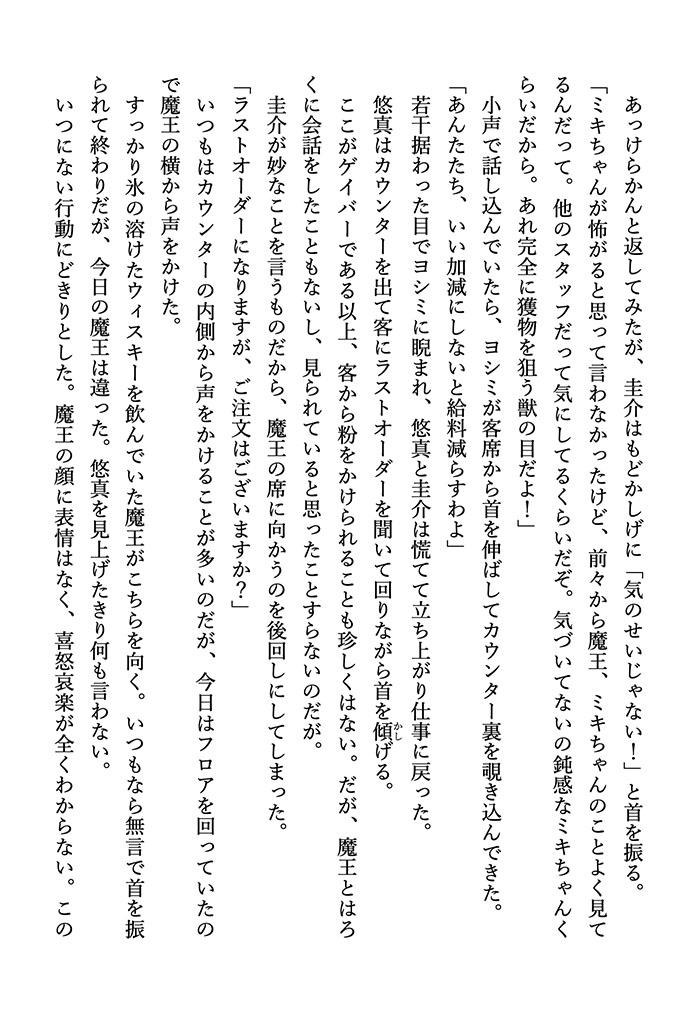 あっけらかんと返してみたが、圭介はもどかしげに「気のせいじゃない！」と首を振る。
「ミキちゃんが怖がると思って言わなかったけど、前々から魔王、ミキちゃんのことよく見て
るんだって。他のスタッフだって気にしてるくらいだぞ。気づいてないの鈍感なミキちゃんく
らいだから。あれ完全に獲物を狙う獣の目だよ！」
小声で話し込んでいたら、ヨシミが客席から首を伸ばしてカウンター裏を覗き込んできた。
「あんたたち、いい加減にしないと給料減らすわよ」
若干据わった目でヨシミに睨まれ、悠真と圭介は慌てて立ち上がり仕事に戻った。
悠真はカウンターを出て客にラストオーダーを聞いて回りながら首を傾かしげる。
ここがゲイバーである以上、客から粉をかけられることも珍しくはない。だが、魔王とはろ
くに会話をしたこともないし、見られていると思ったことすらないのだが。
圭介が妙なことを言うものだから、魔王の席に向かうのを後回しにしてしまった。
「ラストオーダーになりますが、ご注文はございますか？」
いつもはカウンターの内側から声をかけることが多いのだが、今日はフロアを回っていたの
で魔王の横から声をかけた。
すっかり氷の溶けたウィスキーを飲んでいた魔王がこちらを向く。いつもなら無言で首を振
られて終わりだが、今日の魔王は違った。悠真を見上げたきり何も言わない。
いつにない行動にどきりとした。魔王の顔に表情はなく、喜怒哀楽が全くわからない。この